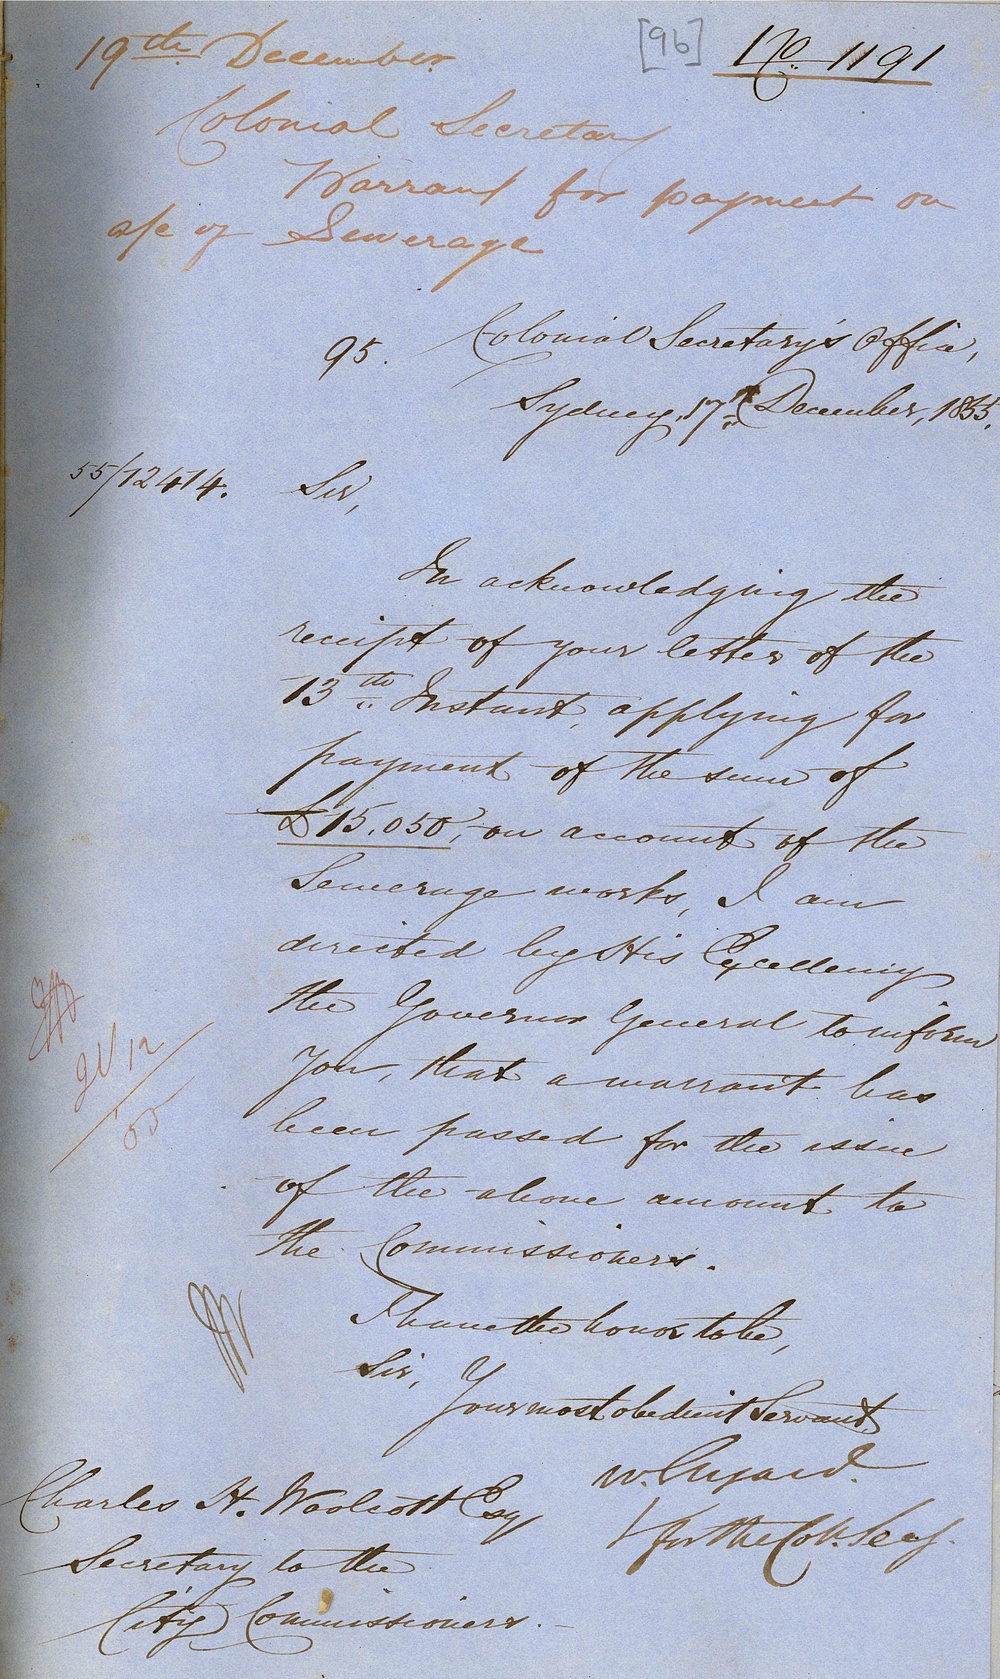 19th December
[96]
No. 1191
Colonial Secretary
Warrant for payment on
a/c of Sewerage
95.
Colonial Secretary's Office,
Sydney, 17th December, 1855.
55/12414.
Sir,
In acknowledging the
receipt of your letter of the
13th Instant, applying for
payment of the sum of
£15,050, on account of the
Sewerage works, I am
directed by His Excellency
the Governor General to inform
you, that a warrant has
been passed for the issue
of the above amount to
the Commissioners.
I have the honor to be,
Sir,
Your most obedient Servant
W. Elyard.
for the Col. Secy.
Charles H. Woolcott Esq
Secretary to the
City Commissioners.